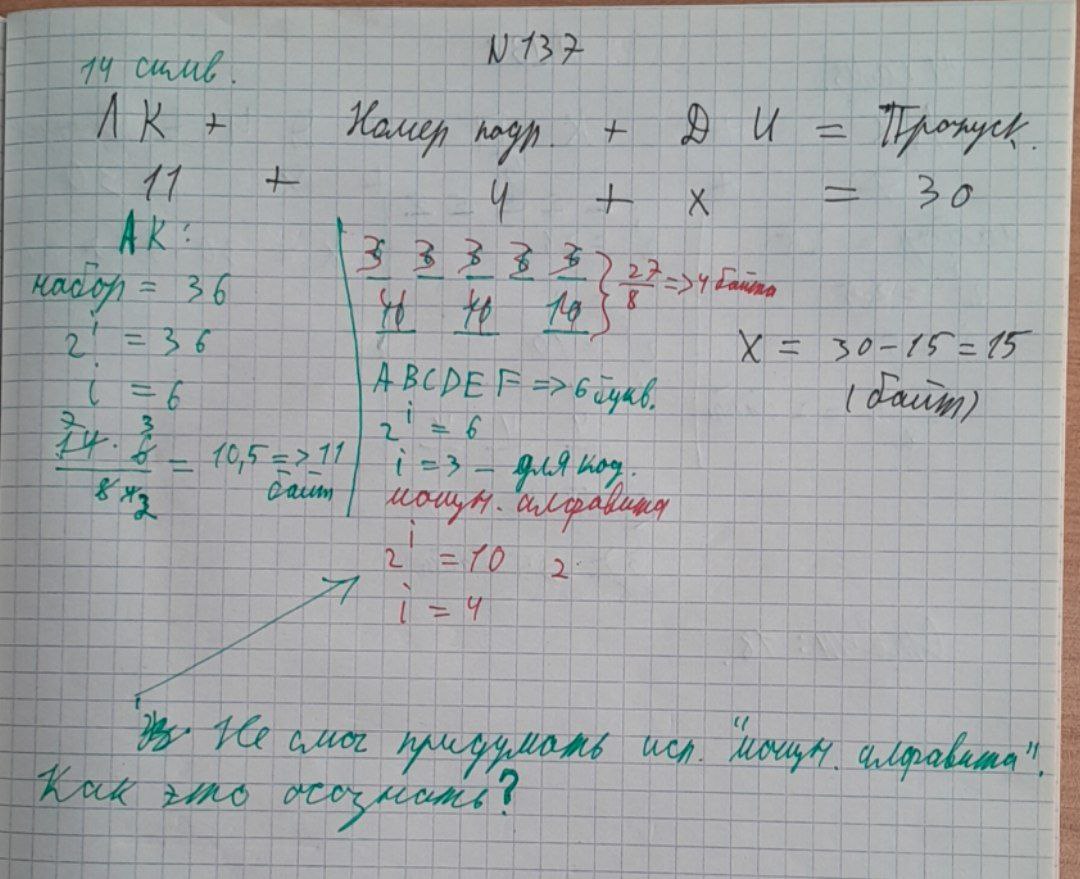 N 137
14 симв.
ЛК + Номер подр. + ДИ = Пропуск.
11 + 4 + x = 30
ЛК:
набор = 36
2^i = 36
i = 6
7 3
14 · 6 / 8 * 2 = 10,5 => 11 байт
3 3 3 3 3 } 27/8 => 4 байта
4 4
A B C D E F => 6 букв.
2^i = 6
i = 3 – для код.
мощн. алфавита
2^i = 10 2
i = 4
X = 30 - 15 = 15
(байт)
Не смог придумать исп. "мощн. алфавита".
Как это осознать?